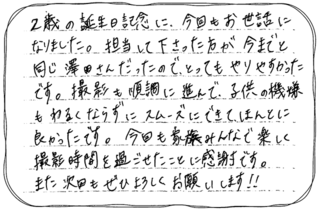 2歳の誕生日記念に、今回もお世話に
なりました。担当して下さった方が今までと
同じ澤田さんだったので、とってもやりやすかった
です。撮影も順調に進んで、子供の機嫌
もわるくならずにスムーズにできて、ほんとに
良かったです。今回も家族みんなで楽しく
撮影時間を過ごせたことに感謝です。
また次回もぜひよろしくお願いします!!